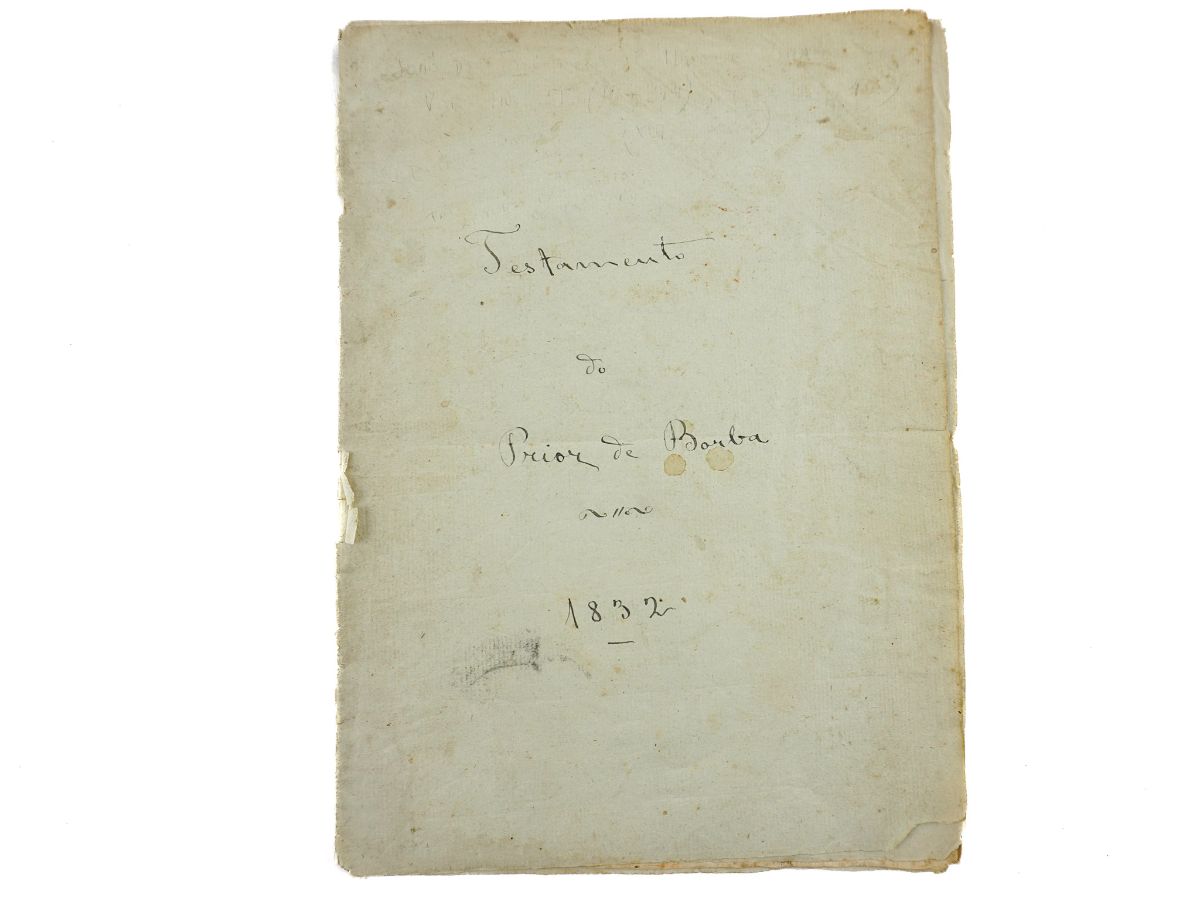 Testamento
do
Prior de Borba
1832